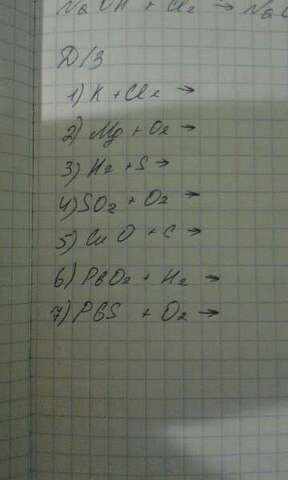 NaOH + Cl₂ → NaC
Д/З
1) K + Cl₂ →
2) Mg + O₂ →
3) H₂ + S →
4) SO₂ + O₂ →
5) Cu O + C →
6) PbO₂ + H₂ →
7) PbS + O₂ →